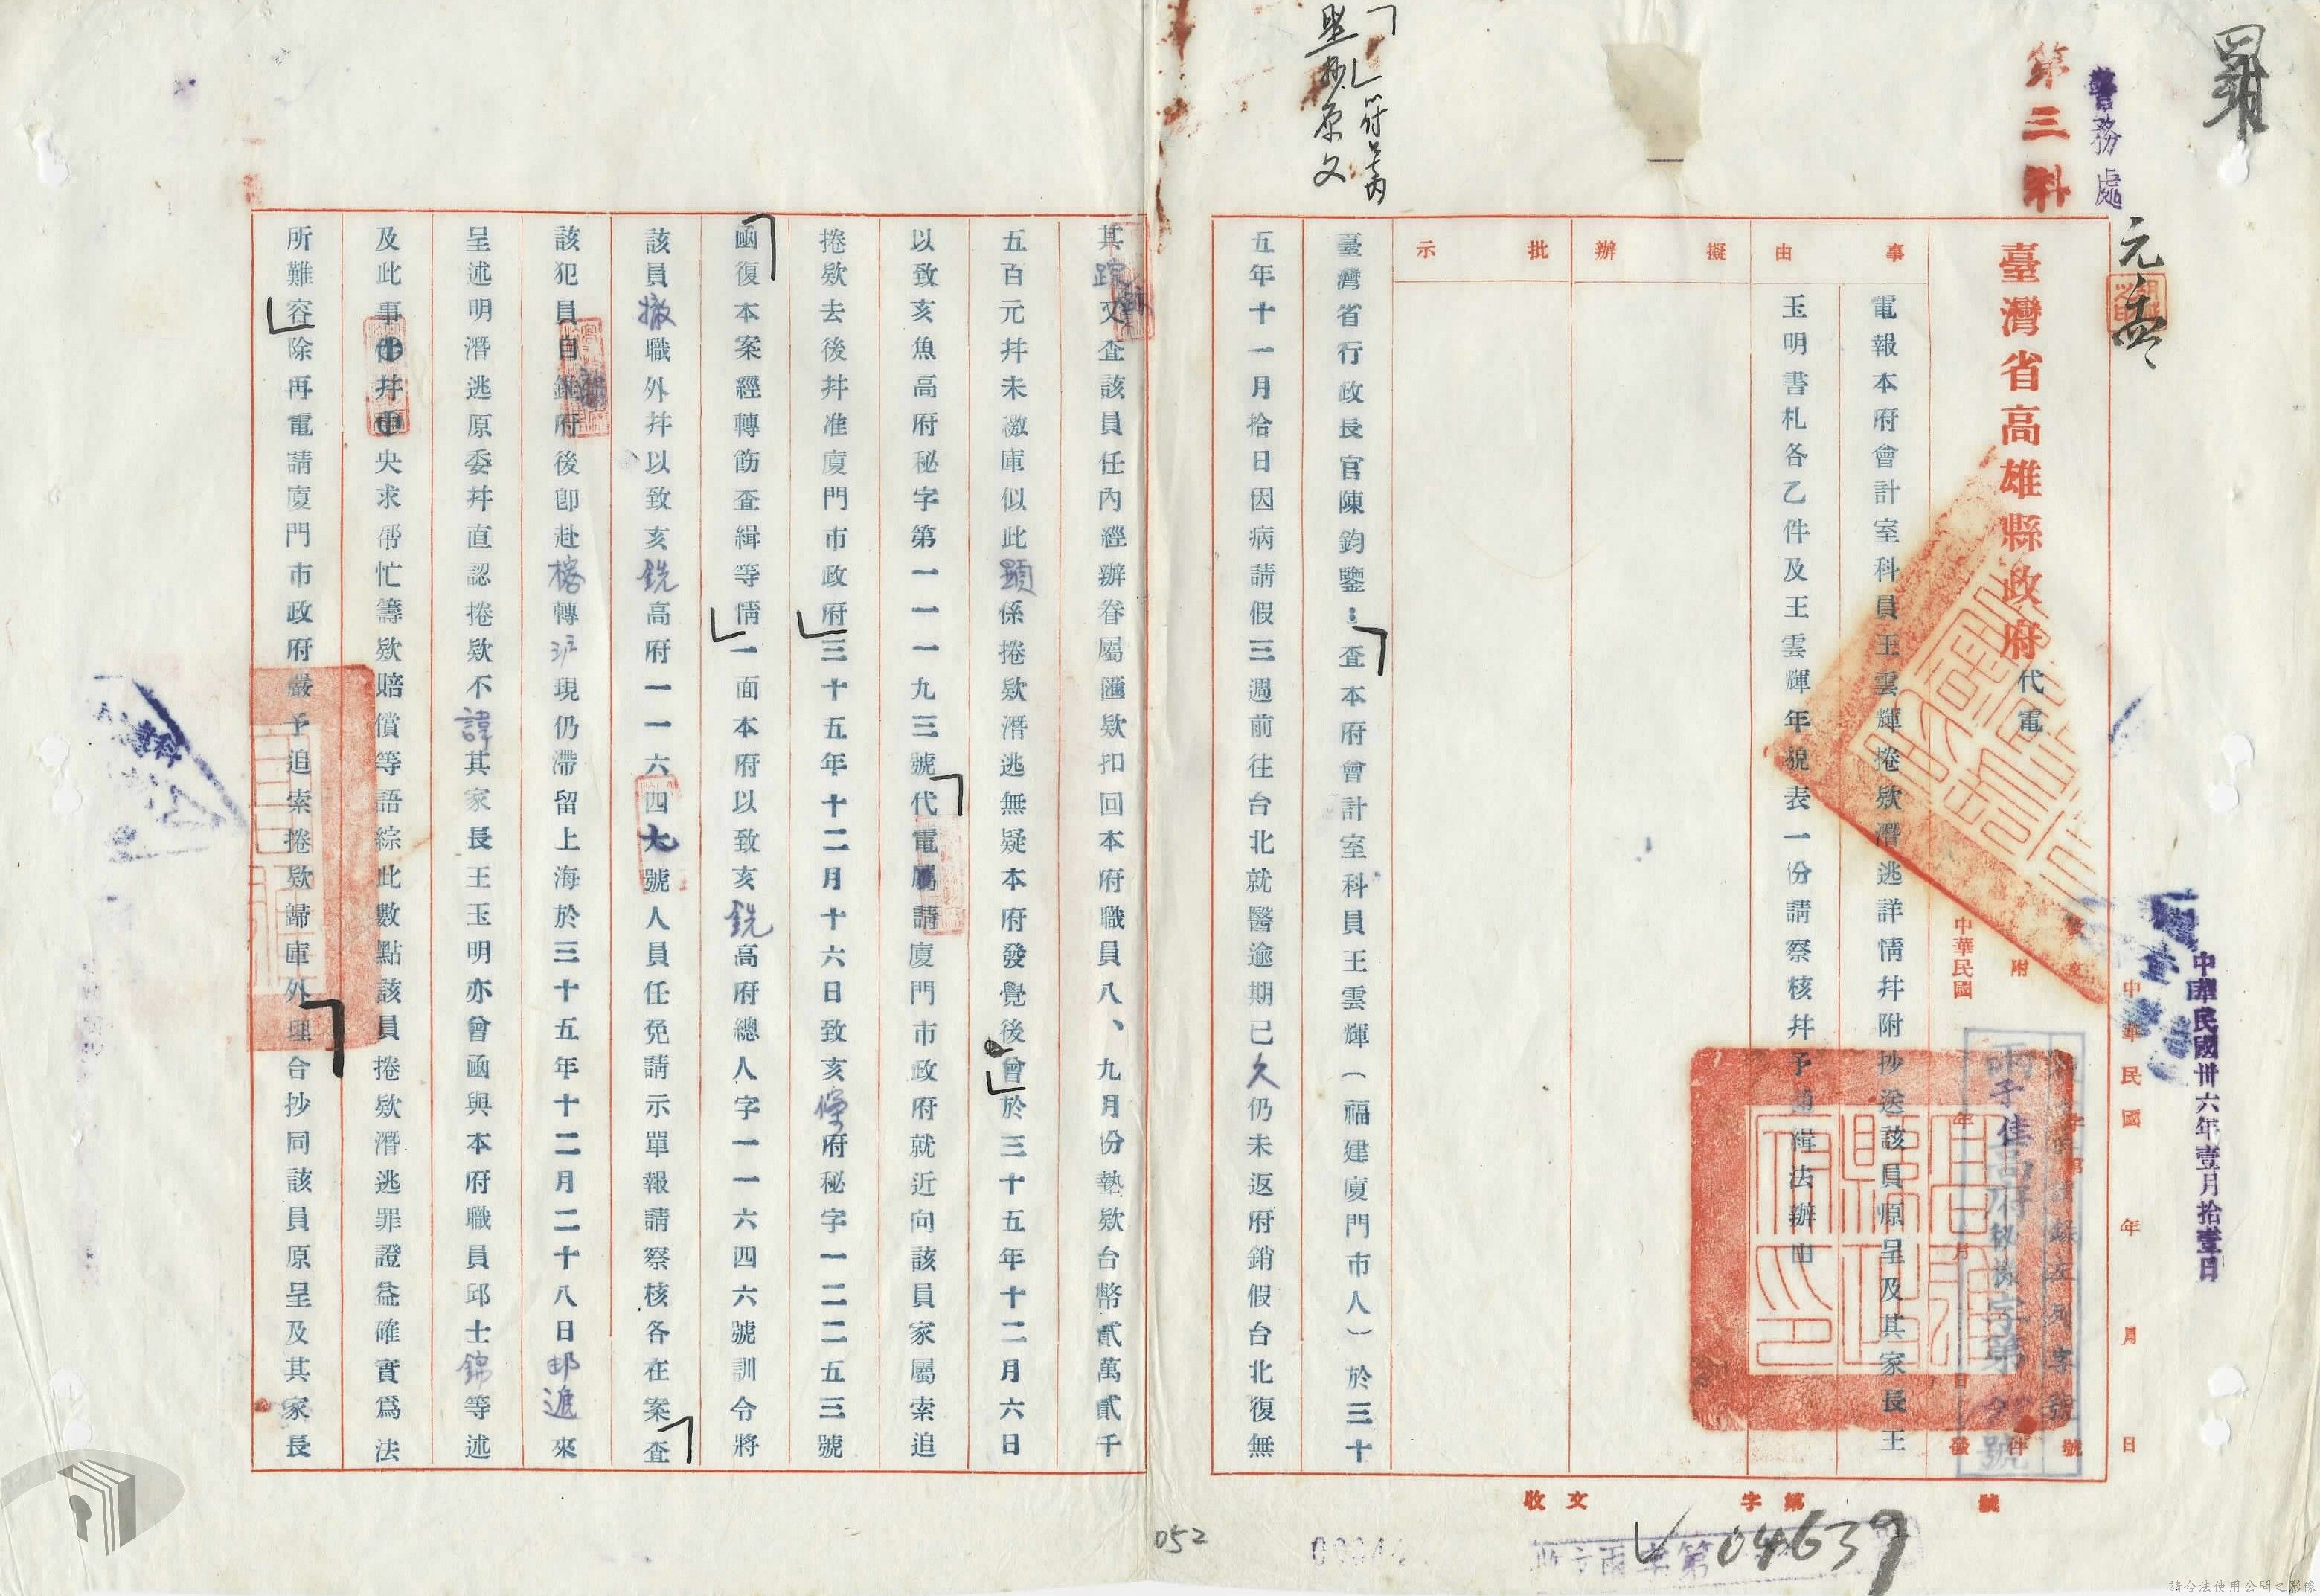 羅
警務處
第三科
元
臺灣省高雄縣政府代電
中華民國卅六年壹月拾壹日
中華民國 年 月 日
附 件
中華民國 年 月 日
子佳高府秘 字第 號
請錄左列字號
事由
電報本府會計室科員王雲輝捲欵潛逃詳情幷附抄送該員原呈及其家長王
玉明書札各乙件及王雲輝年貌表一份請察核幷予通緝法辦由
擬辦
批示
「」符號內
照抄原文
臺灣省行政長官陳鈞鑒:「查本府會計室科員王雲輝(福建廈門市人)於三十
五年十一月拾日因病請假三週前往台北就醫逾期已久仍未返府銷假台北復無
其踪 查該員任內經辦眷屬匯欵扣回本府職員八、九月份墊欵台幣貳萬貳千
五百元幷未繳庫似此顯係捲欵潛逃無疑本府發覺後曾」於三十五年十二月六日
以致亥魚高府秘字第一一一九三號「代電 請廈門市政府就近向該員家屬索追
捲欵去後幷准廈門市政府」三十五年十二月十六日致亥 府秘字一二二五三號
「函復本案經轉飭查緝等情」一面本府以致亥銑高府總人字一一六四六號訓令將
該員撤職外幷以致亥銑高府一一六四 號人員任免請示單報請察核各在案「查
該犯員自 府後卽赴榕轉 現仍滯留上海於三十五年十二月二十八日郵遞來
呈述明潛逃原委幷直認捲欵不諱其家長王玉明亦曾函與本府職員邱士錦等述
及此事 幷 央求帮忙籌欵賠償等語綜此數點該員捲欵潛逃罪證益確實爲法
所難容」除再電請廈門市政府嚴予追索捲欵歸庫外「理合抄同該員原呈及其家長
收文 字第 號
04639
052
請合法使用公開之影像